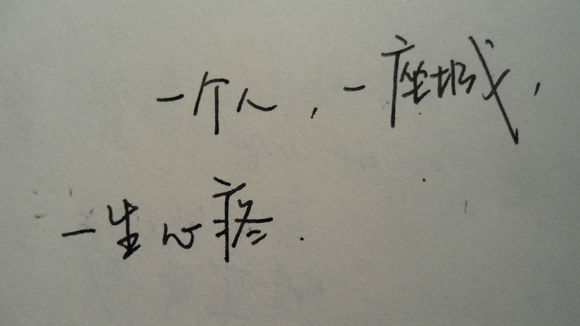 一个人，一座城，
一生心疼.